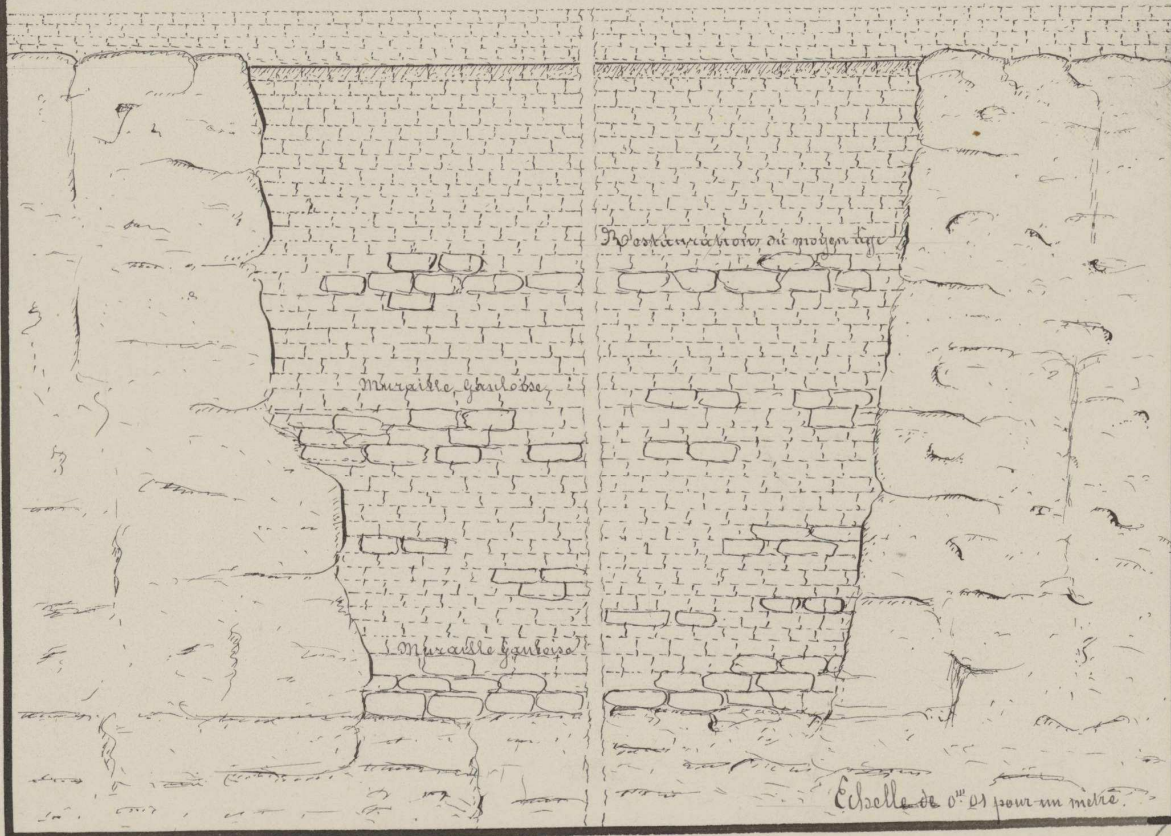 Restauration du moyen âge
Muraille Gauloise
Muraille Gauloise
Echelle de 0m 01 pour un mètre.